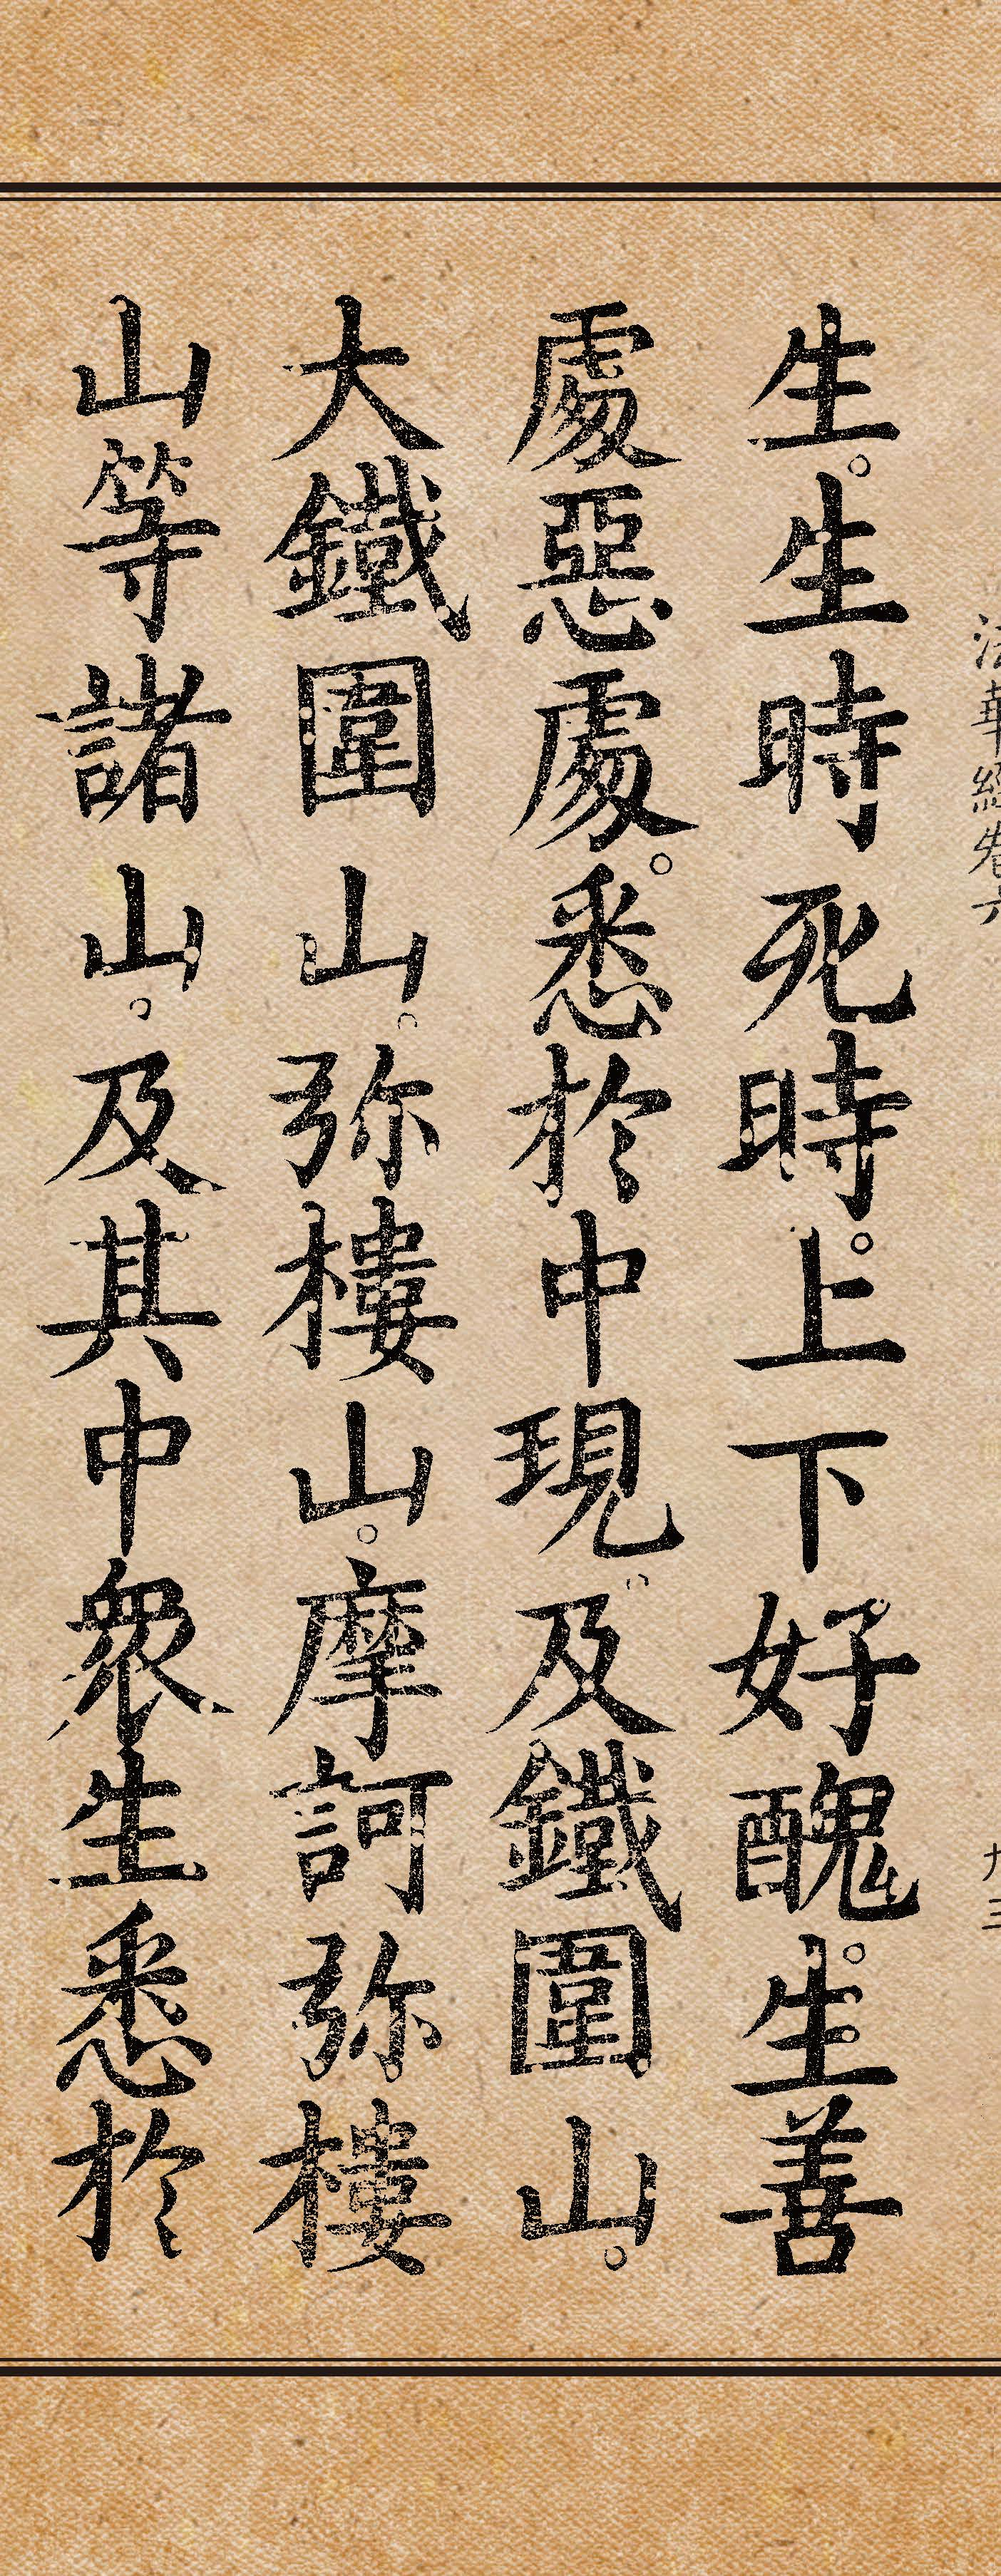 法華經卷六
九三
生。生時死時。上下好醜。生善
處惡處。悉於中現。及鐵圍山。
大鐵圍山。弥樓山。摩訶弥樓
山等諸山。及其中眾生悉於